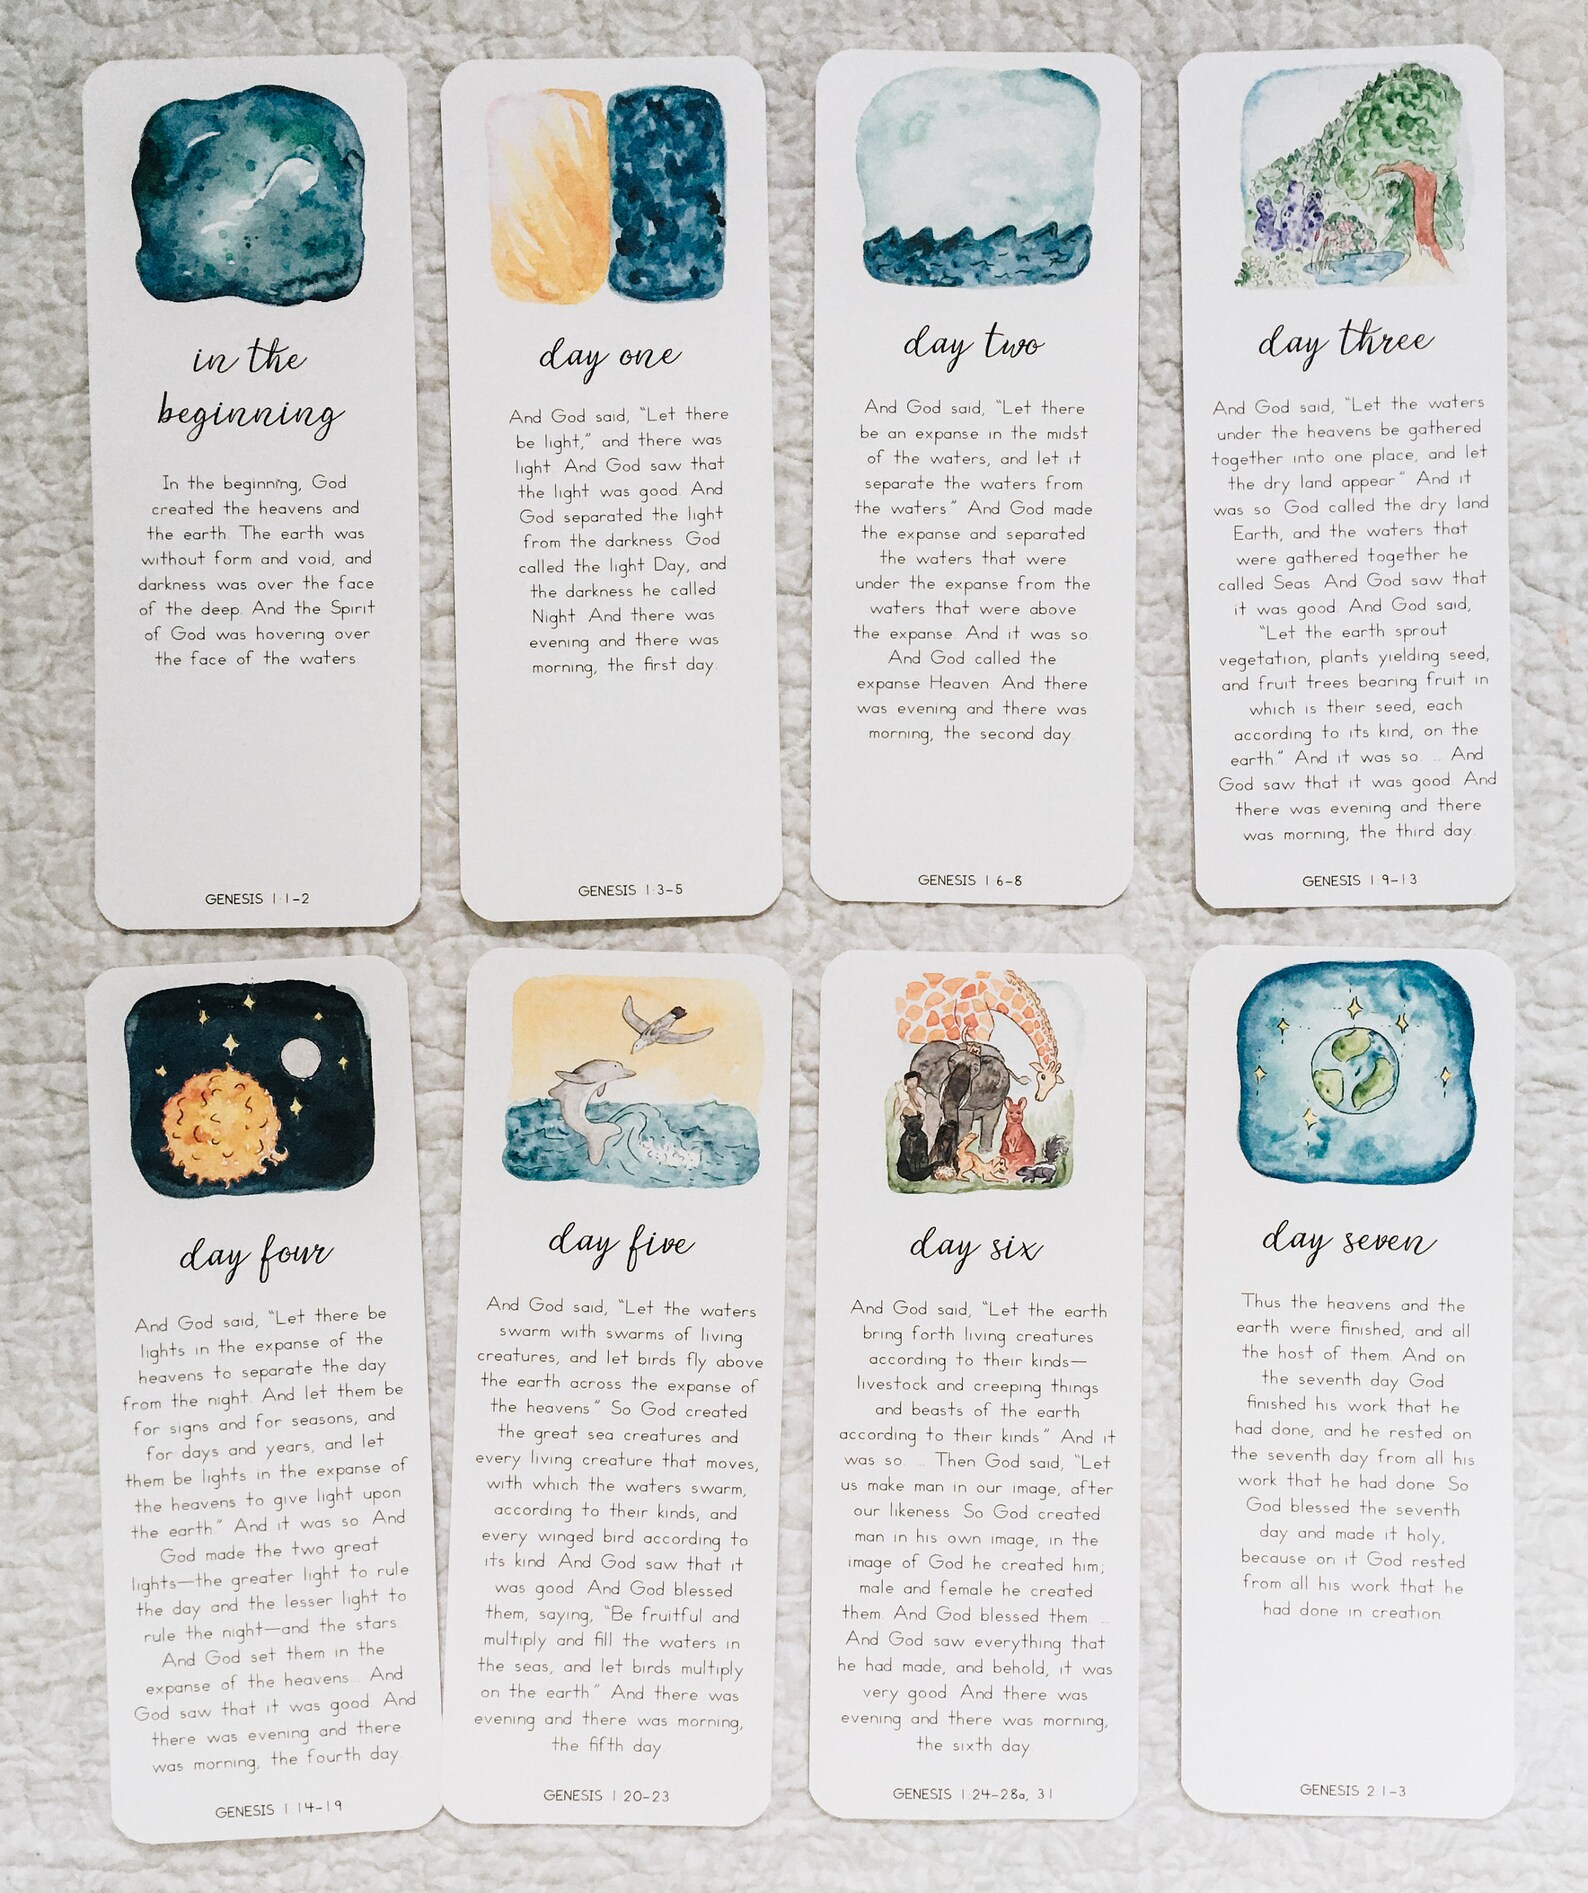 in the
beginning
In the beginning, God
created the heavens and
the earth. The earth was
without form and void, and
darkness was over the face
of the deep. And the Spirit
of God was hovering over
the face of the waters.
GENESIS 1:1-2
day one
And God said, "Let there
be light," and there was
light. And God saw that
the light was good. And
God separated the light
from the darkness. God
called the light Day, and
the darkness he called
Night. And there was
evening and there was
morning, the first day.
GENESIS 1:3-5
day two
And God said, "Let there
be an expanse in the midst
of the waters, and let it
separate the waters from
the waters." And God made
the expanse and separated
the waters that were
under the expanse from the
waters that were above
the expanse. And it was so.
And God called the
expanse Heaven. And there
was evening and there was
morning, the second day.
GENESIS 1:6-8
day three
And God said, "Let the waters
under the heavens be gathered
together into one place, and let
the dry land appear." And it
was so. God called the dry land
Earth, and the waters that
were gathered together he
called Seas. And God saw that
it was good. And God said,
"Let the earth sprout
vegetation, plants yielding seed,
and fruit trees bearing fruit in
which is their seed, each
according to its kind, on the
earth." And it was so. ... And
God saw that it was good. And
there was evening and there
was morning, the third day.
GENESIS 1:9-13
day four
And God said, "Let there be
lights in the expanse of the
heavens to separate the day
from the night. And let them be
for signs and for seasons, and
for days and years, and let
them be lights in the expanse of
the heavens to give light upon
the earth." And it was so. And
God made the two great
lights—the greater light to rule
the day and the lesser light to
rule the night—and the stars.
And God set them in the
expanse of the heavens... And
God saw that it was good. And
there was evening and there
was morning, the fourth day.
GENESIS 1:14-19
day five
And God said, "Let the waters
swarm with swarms of living
creatures, and let birds fly above
the earth across the expanse of
the heavens." So God created
the great sea creatures and
every living creature that moves,
with which the waters swarm,
according to their kinds, and
every winged bird according to
its kind. And God saw that it
was good. And God blessed
them, saying, "Be fruitful and
multiply and fill the waters in
the seas, and let birds multiply
on the earth." And there was
evening and there was morning,
the fifth day.
GENESIS 1:20-23
day six
And God said, "Let the earth
bring forth living creatures
according to their kinds—
livestock and creeping things
and beasts of the earth
according to their kinds." And it
was so. ... Then God said, "Let
us make man in our image, after
our likeness. So God created
man in his own image, in the
image of God he created him;
male and female he created
them. And God blessed them. ...
And God saw everything that
he had made, and behold, it was
very good. And there was
evening and there was morning,
the sixth day.
GENESIS 1:24-28a, 31
day seven
Thus the heavens and the
earth were finished, and all
the host of them. And on
the seventh day God
finished his work that he
had done, and he rested on
the seventh day from all his
work that he had done. So
God blessed the seventh
day and made it holy,
because on it God rested
from all his work that he
had done in creation.
GENESIS 2:1-3